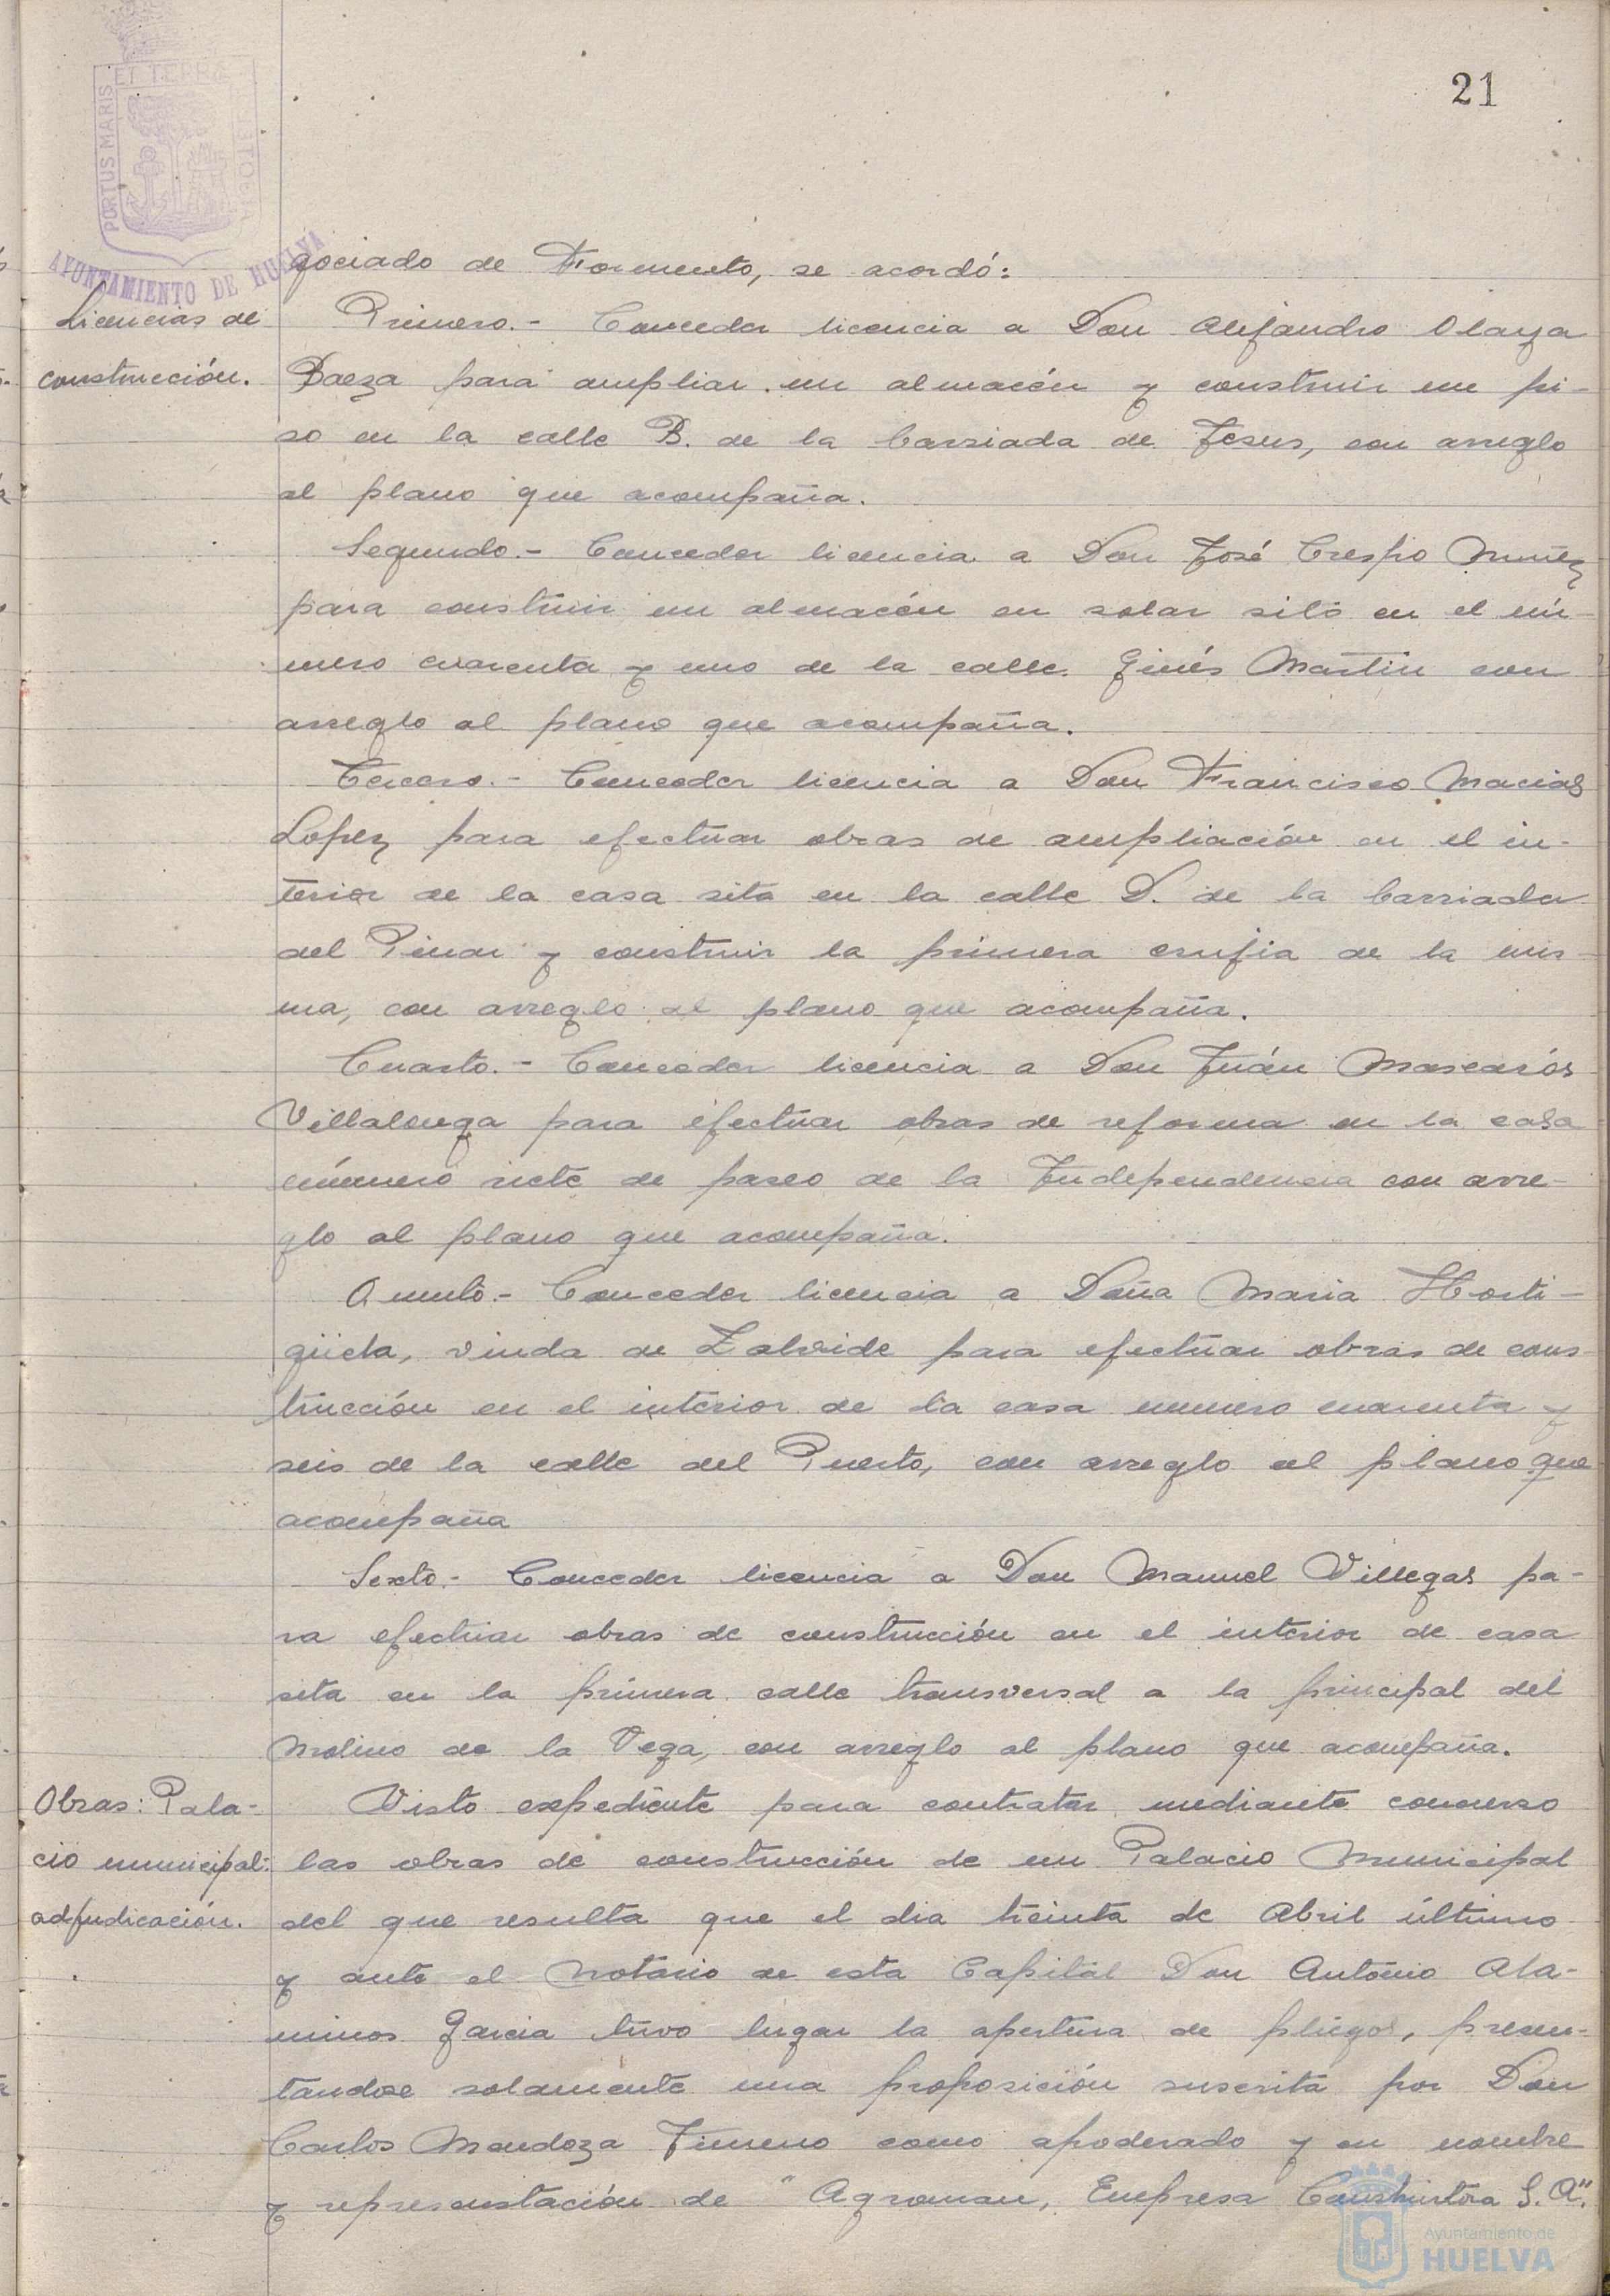 21
PORTUS MARIS ET TERRÆ
AYUNTAMIENTO DE HUELVA
gociado de Fomento, se acordó:
Licencias de
construcción.
Primero.- Conceder licencia a Don Alejandro Olaya
Baeza para ampliar un almacén y construir un pi-
so en la calle B. de la barriada de Jesus, con arreglo
al plano que acompaña.
Segundo.- Conceder licencia a Don José Crespo Nuñez
para construir un almacén en solar sito en el nú-
mero cuarenta y uno de la calle Ginés Martín con
arreglo al plano que acompaña.
Tercero.- Conceder licencia a Don Francisco Macias
Lopez para efectuar obras de ampliación en el in-
terior de la casa sita en la calle D. de la barriada
del Pinar y construir la primera crujia de la mis-
ma, con arreglo al plano que acompaña.
Cuarto.- Conceder licencia a Don Juán Mascarós
Villalonga para efectuar obras de reforma en la casa
número siete de paseo de la Independencia con arre-
glo al plano que acompaña.
Quinto.- Conceder licencia a Doña Maria Horti-
güela, viuda de Zalvide para efectuar obras de cons-
trucción en el interior de la casa numero cuarenta y
seis de la calle del Puerto, con arreglo al plano que
acompaña
Sexto.- Conceder licencia a Don Manuel Villegas pa-
ra efectuar obras de construcción en el interior de casa
sita en la primera calle transversal a la principal del
Molino de la Vega, con arreglo al plano que acompaña.
Obras: Pala-
cio municipal:
adjudicación.
Visto expediente para contratar mediante concurso
las obras de construcción de un Palacio Municipal
del que resulta que el dia treinta de Abril último
y ante el Notario de esta Capital Don Antonio Ala-
minos Garcia tuvo lugar la apertura de pliegos, presen-
tandose solamente una proposición suscrita por Don
Carlos Mendoza Jimeno como apoderado y en nombre
y representación de "Agroman, Empresa Constructora S.A".
Ayuntamiento de
HUELVA